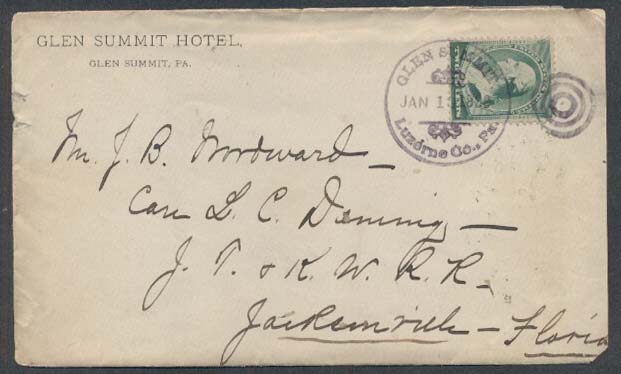 GLEN SUMMIT HOTEL,
GLEN SUMMIT, PA.
GLEN SUMMIT
JAN 13
Luzerne Co., Pa.
Mr. J. B. Woodward —
Care L. C. Deming —
J. T. & K. W. R. R. —
Jacksonville — Florida